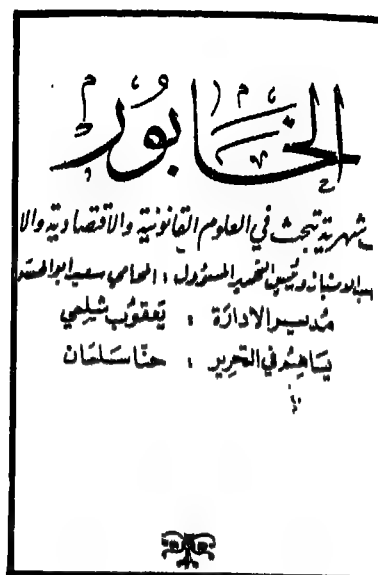 الخابور
شهرية تبحث في العلوم القانونية والاقتصادية والا
الامتياز ورئيس التحرير المسؤول : المحامي سعيد ابو الحسن
مدير الادارة : يعقوب شلمي
يساهم في التحرير : حنا سلمان